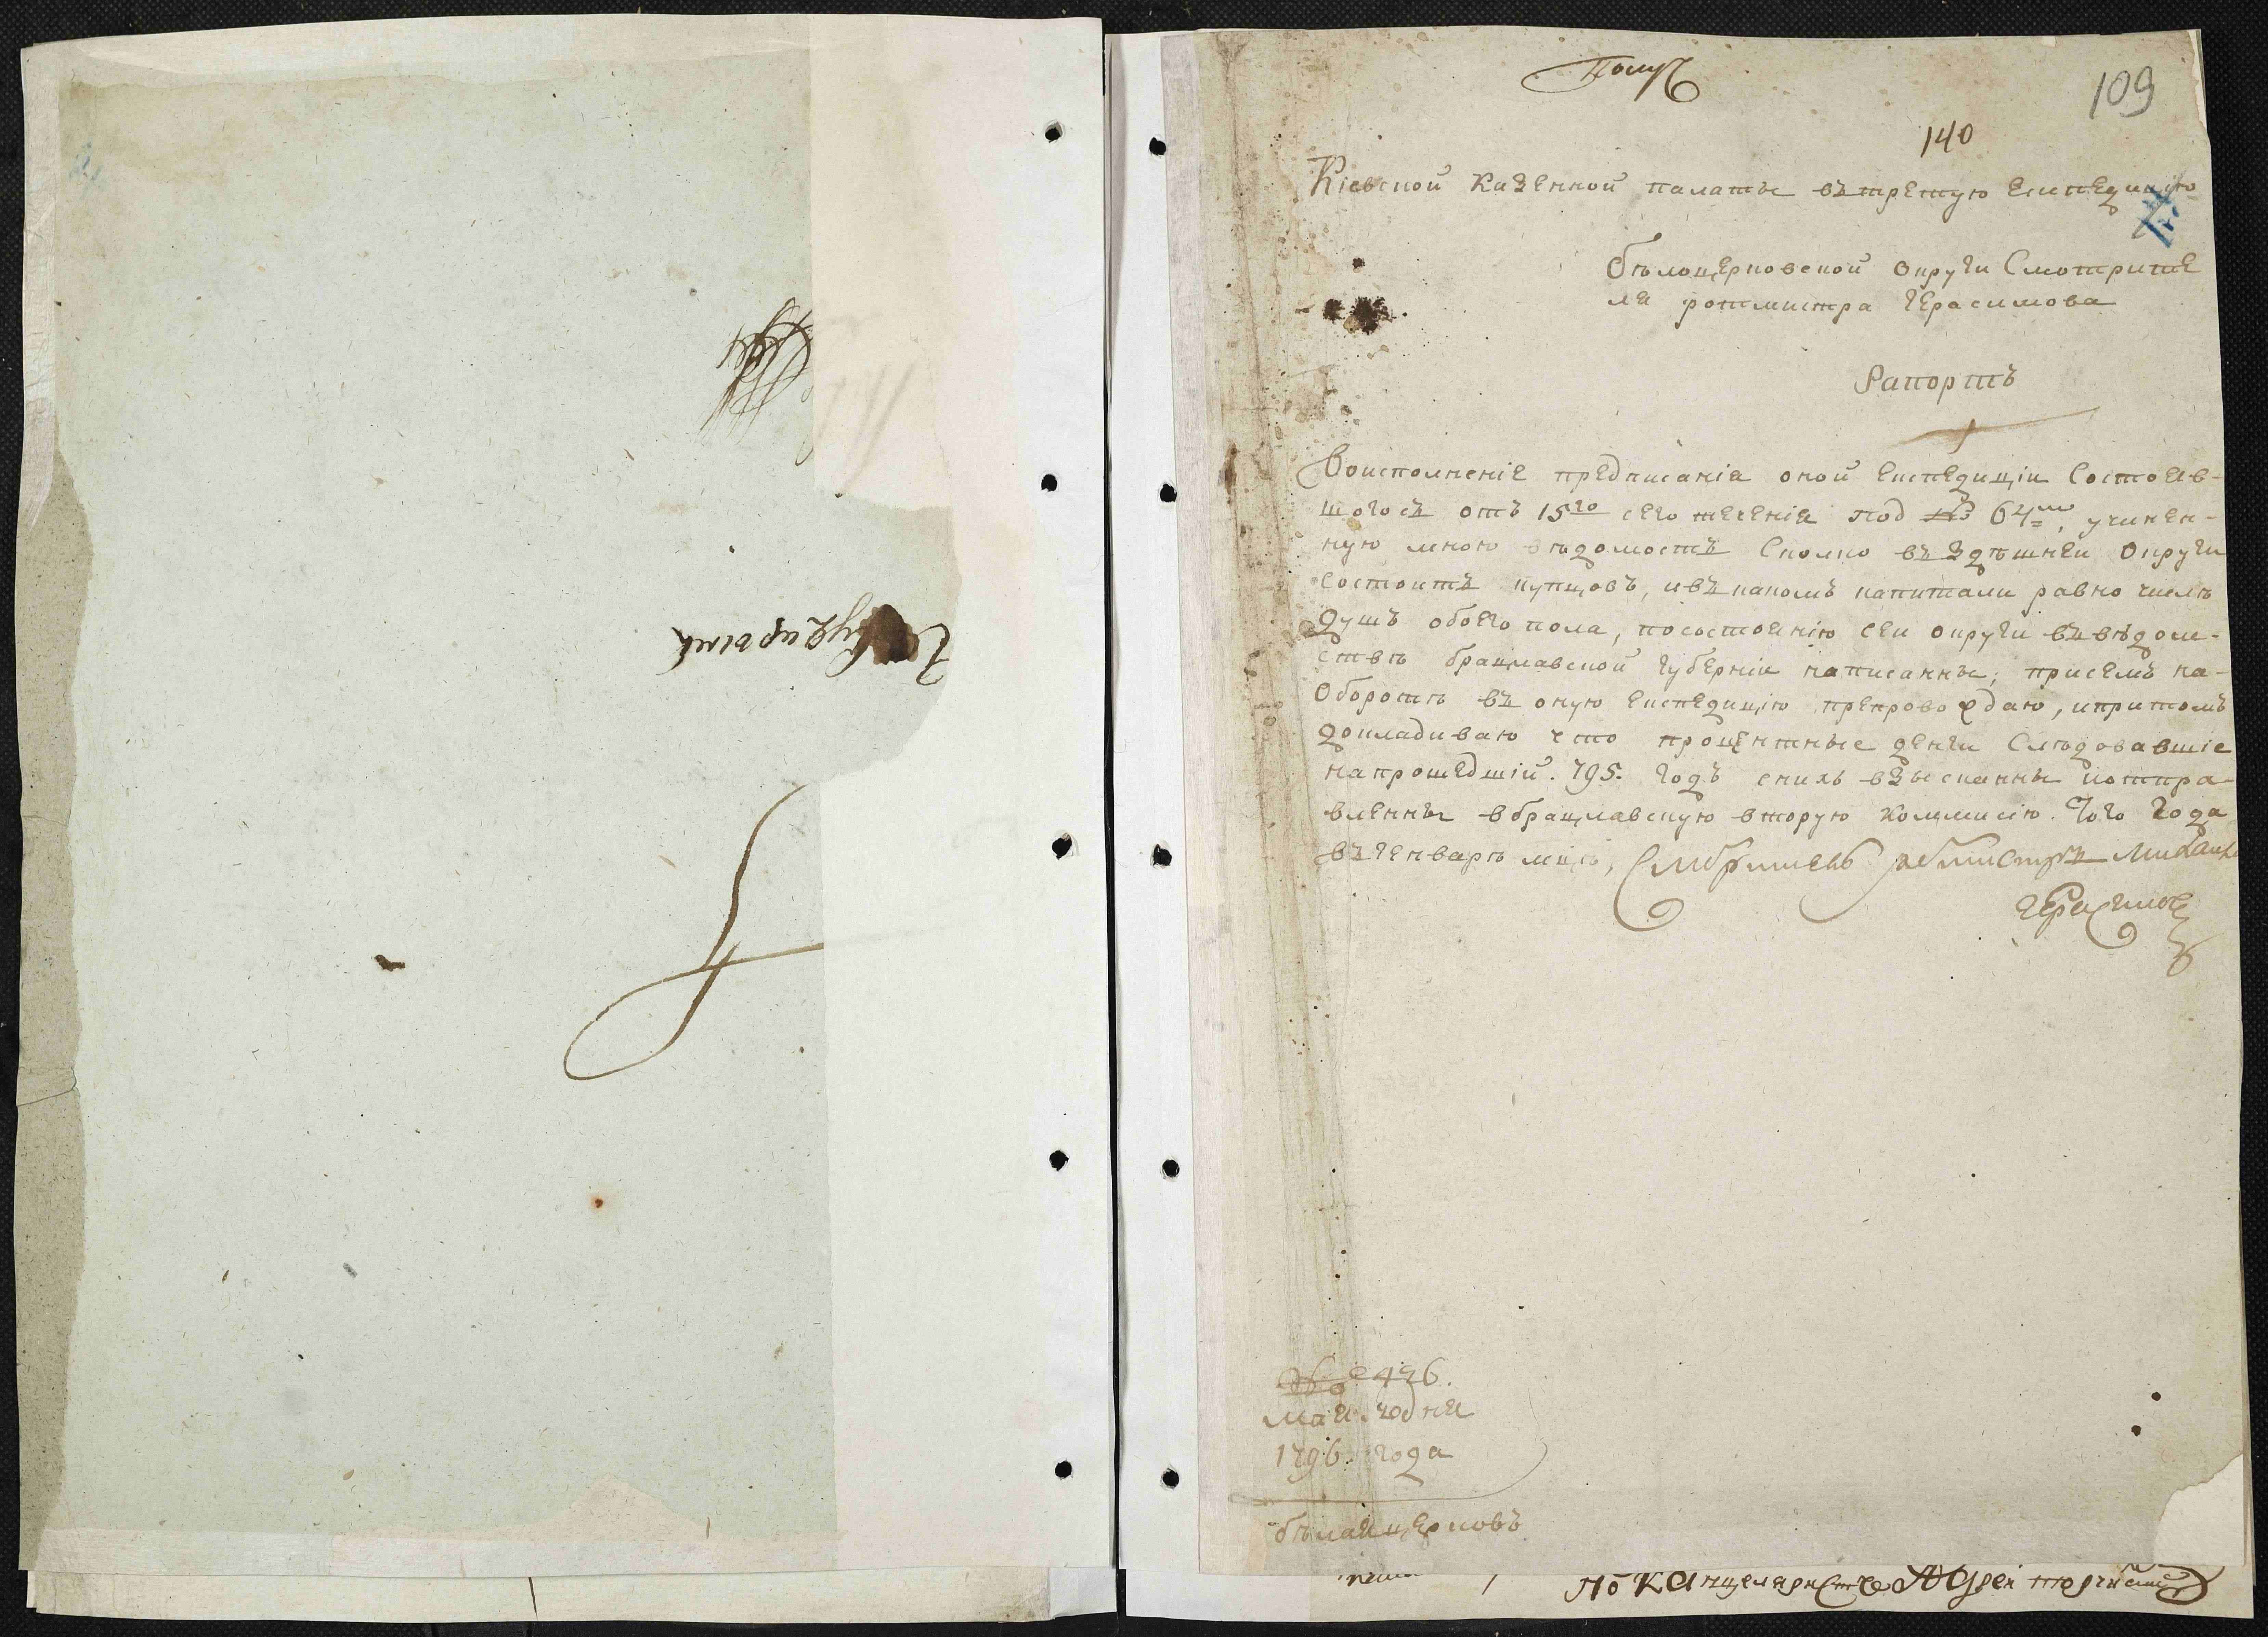 109
140
Кіевской казенной палаты въ третую Експедицію
бѣлоцерковской округи Смотрите
ля ротмистра герасимова
Рапортъ
Воисполненіе предписанія оной Експедиціи Состояв-
шогось отъ 15го сего теченія под № 64м, учинен-
ную мною вѣдомость Сколко въ здѣшней округи
состоитъ купцовъ, ивъ какомъ капитали равно числѣ
душъ обоего пола, посостоянію сей округи въ вѣдом-
ствѣ брацлавской губерніи написанны, присемъ на-
оборотѣ въ оную Експедицію препровождаю, ипритомъ
докладиваю что процентные денги Слѣдовавшіе
напрошедшій. 795. годъ снихъ взысканны иотпра-
вленны вбрацлавскую вторую коммисію. Того года
въ генварѣ мцѣ, Смотритель ротмистръ Михаила
герасимов
№ 426.
мая дня
1796. года
бѣлаяцерковъ
по канцеляристъ